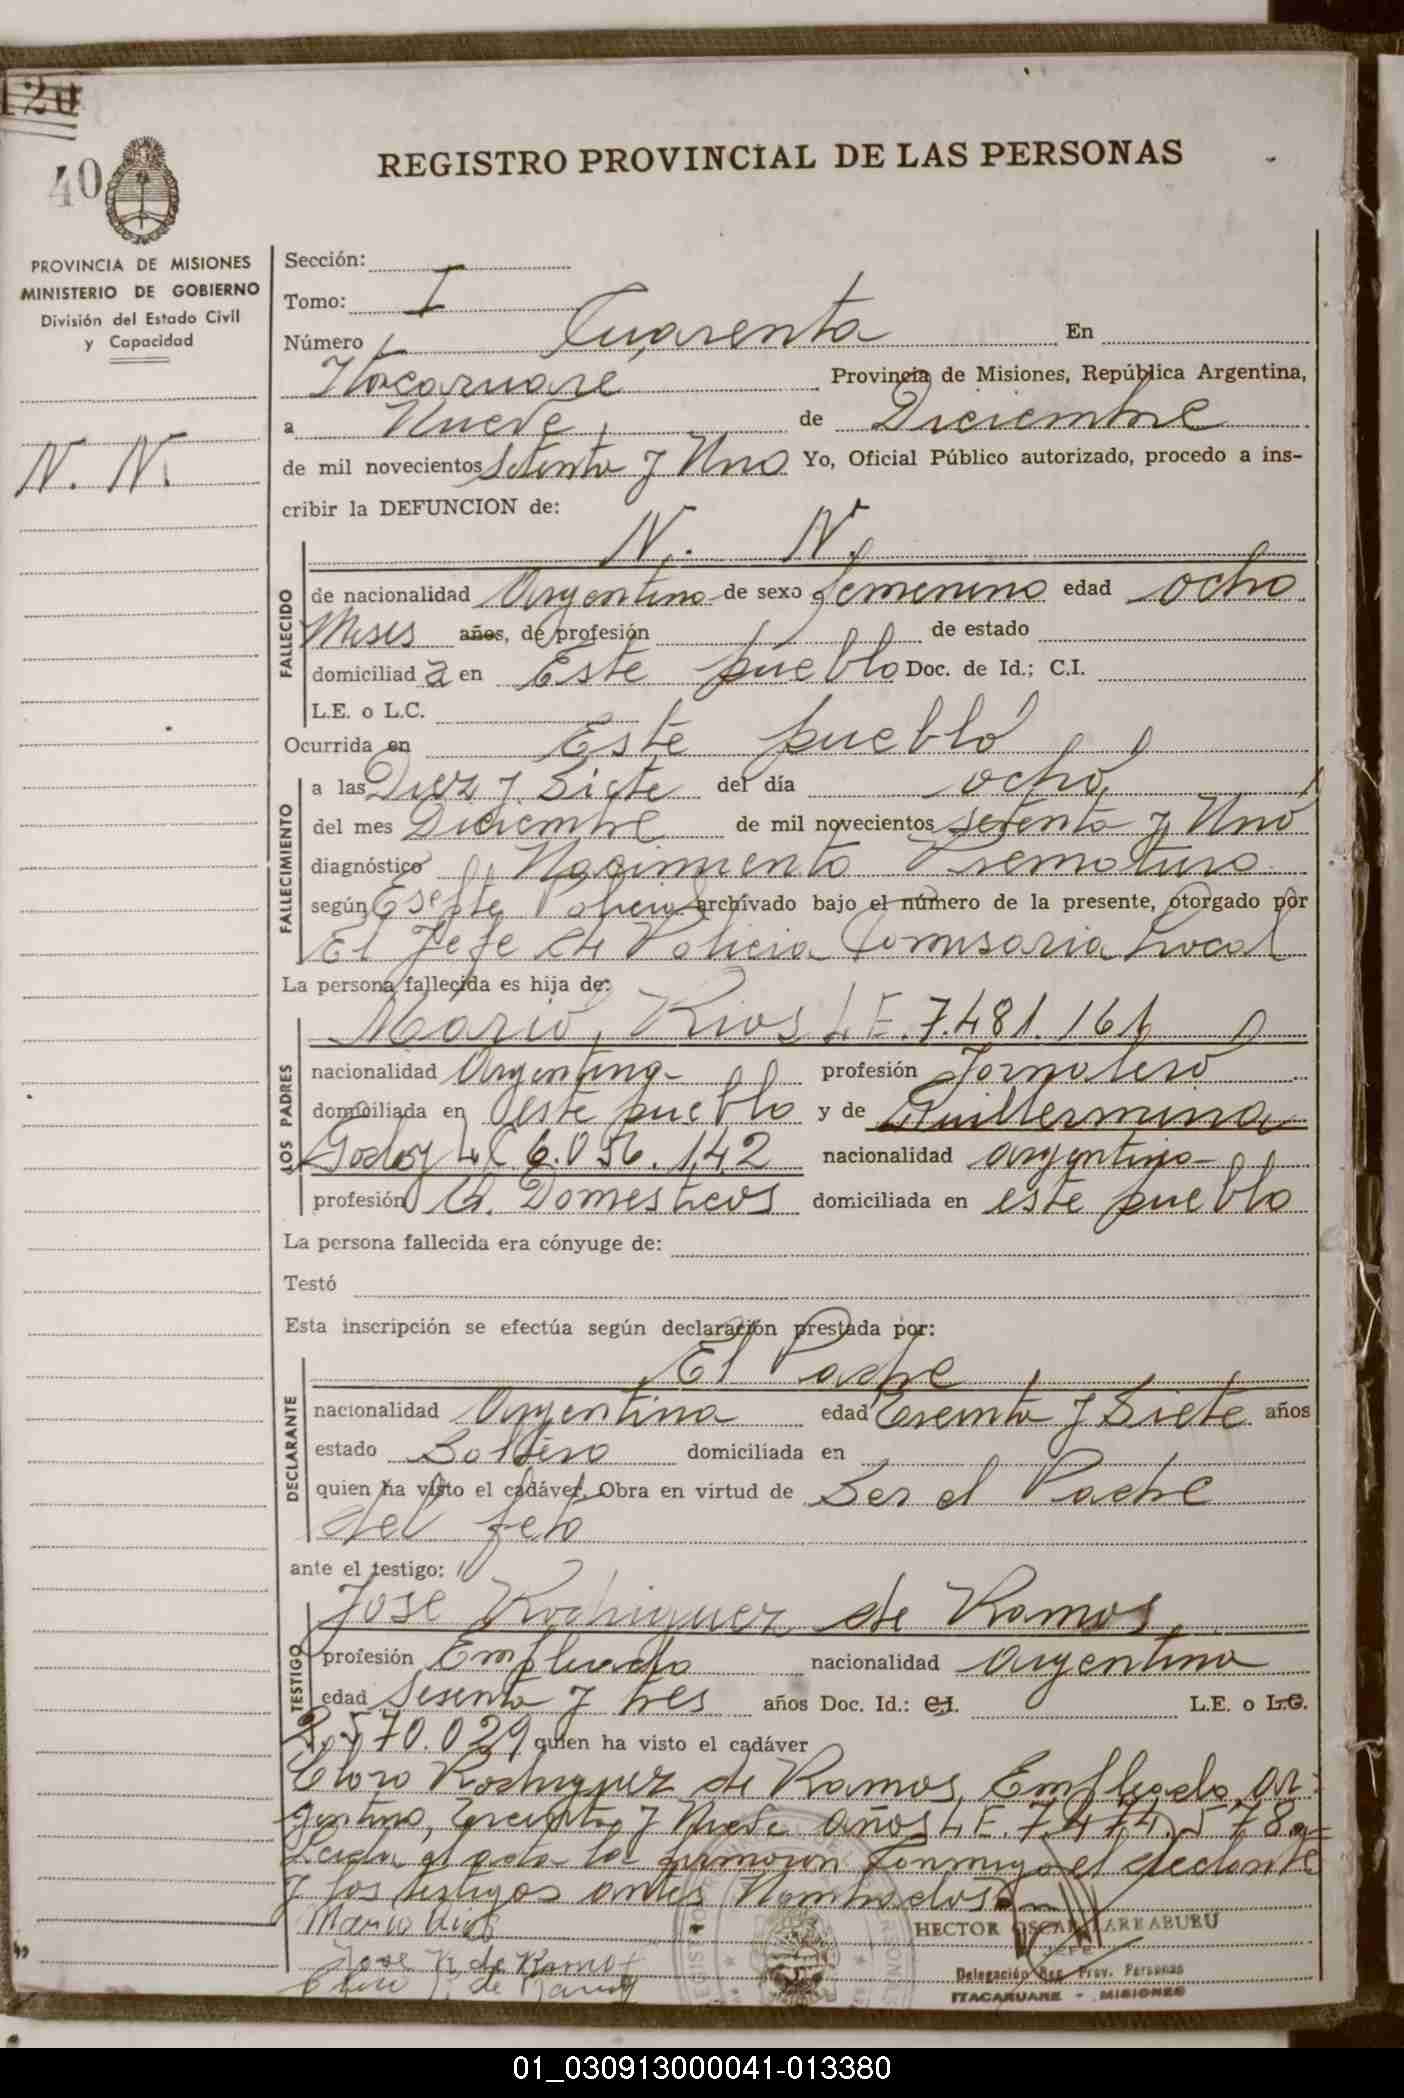 120
40
REGISTRO PROVINCIAL DE LAS PERSONAS
PROVINCIA DE MISIONES
MINISTERIO DE GOBIERNO
División del Estado Civil
y Capacidad
N. N.
Sección:
Tomo: I
Número Cuarenta En
Itacaruare Provincia de Misiones, República Argentina,
a Nueve de Diciembre
de mil novecientos Setenta y Uno Yo, Oficial Público autorizado, procedo a ins-
cribir la DEFUNCION de:
N. N.
FALLECIDO
de nacionalidad Argentina de sexo femenino edad ocho
Meses años, de profesión de estado
domiciliad a en Este pueblo Doc. de Id.; C.I.
L.E. o L.C.
Ocurrida en Este pueblo
FALLECIMIENTO
a las Diez y Siete del día ocho
del mes Diciembre de mil novecientos setenta y Uno
diagnóstico Nacimiento Prematuro
según Policial archivado bajo el número de la presente, otorgado por
El Jefe de Policia Comisaria Local
La persona fallecida es hija de:
LOS PADRES
Mario Rios L.E. 7.481.161
nacionalidad Argentina profesión Jornalero
domiciliada en este pueblo y de Guillermina
Godoy L.C. 6.056.142 nacionalidad argentina
profesión Q. Domesticos domiciliada en este pueblo
La persona fallecida era cónyuge de:
Testó
Esta inscripción se efectúa según declaración prestada por:
DECLARANTE
El Padre
nacionalidad Argentina edad Treinta y Siete años
estado Soltero domiciliada en
quien ha visto el cadáver. Obra en virtud de Ser el Padre
del feto
ante el testigo:
TESTIGO
Jose Rodriguez de Ramos
profesión Empleado nacionalidad Argentina
edad Sesenta y tres años Doc. Id.: C.I. L.E. o L.C.
2.570.029 quien ha visto el cadáver
Cloro Rodriguez de Ramos, Empleado, ar-
gentino, y Nueve años L.E. 7.474.578.
Leida el acta la firmaron Conmigo el declarante
y los testigos antes Nombrados
Mario Rios
HECTOR OSCAR LARRABURU
Jefe
Jose R de Ramos
Cloro R. de Ramos
Delegación Reg. Prov. Personas
ITACARUARE - MISIONES
01_030913000041-013380